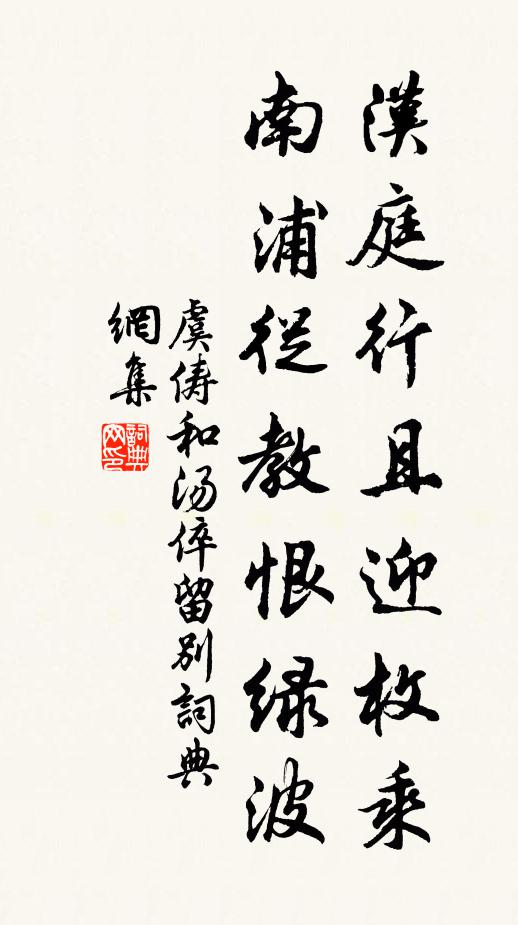 漢庭行且迎枚乘
南浦從教恨緑波
虞俦和汤倅留别詞典
網集
詞典
网印